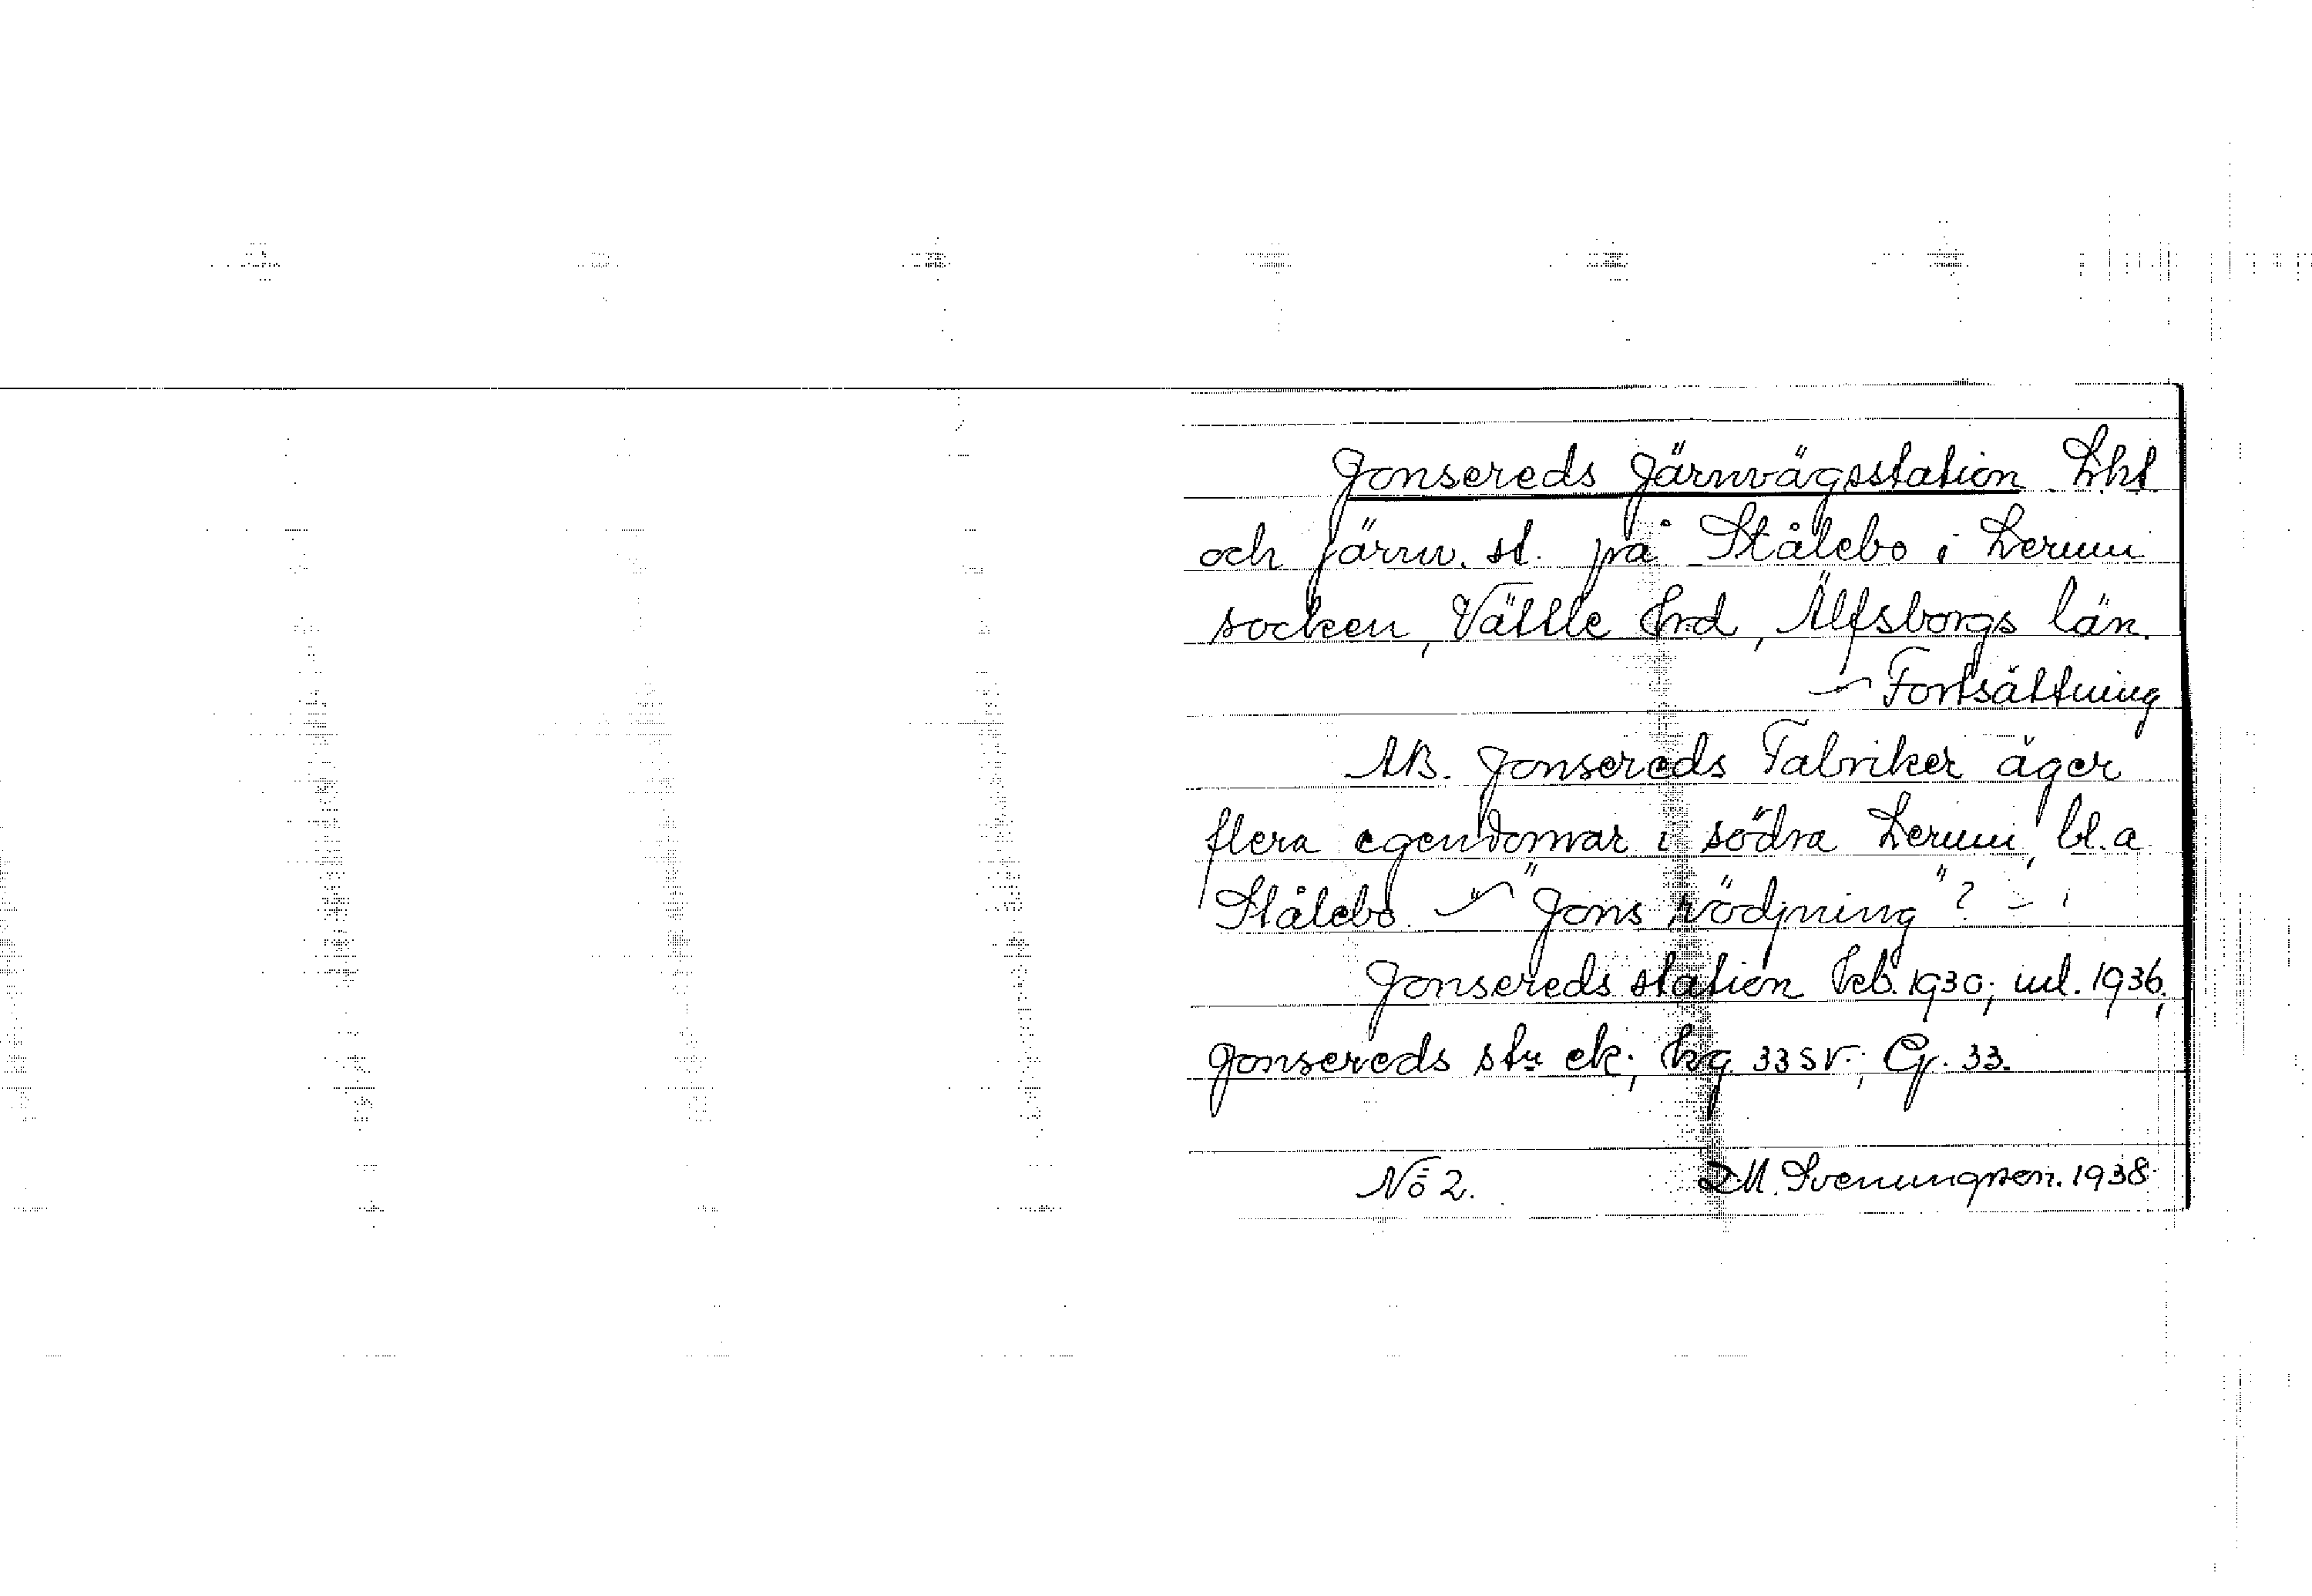 Jonsereds Järnvägsstation Lht
och järnv. st. på Stålebo i Lerum
socken, Vättle Hrd, Älfsborgs län.
~ Fortsättning
AB. Jonsereds Fabriker äger
flera egendomar i södra Lerum, bl.a
Stålebo. ~ "Jons rödjning"? ~
Jonsereds station Ecb. 1930; uul. 1936,
Jonsereds stn ek; Hrg 33 SV; Cj. 33.
No 2. D.M. Svenungsson. 1938